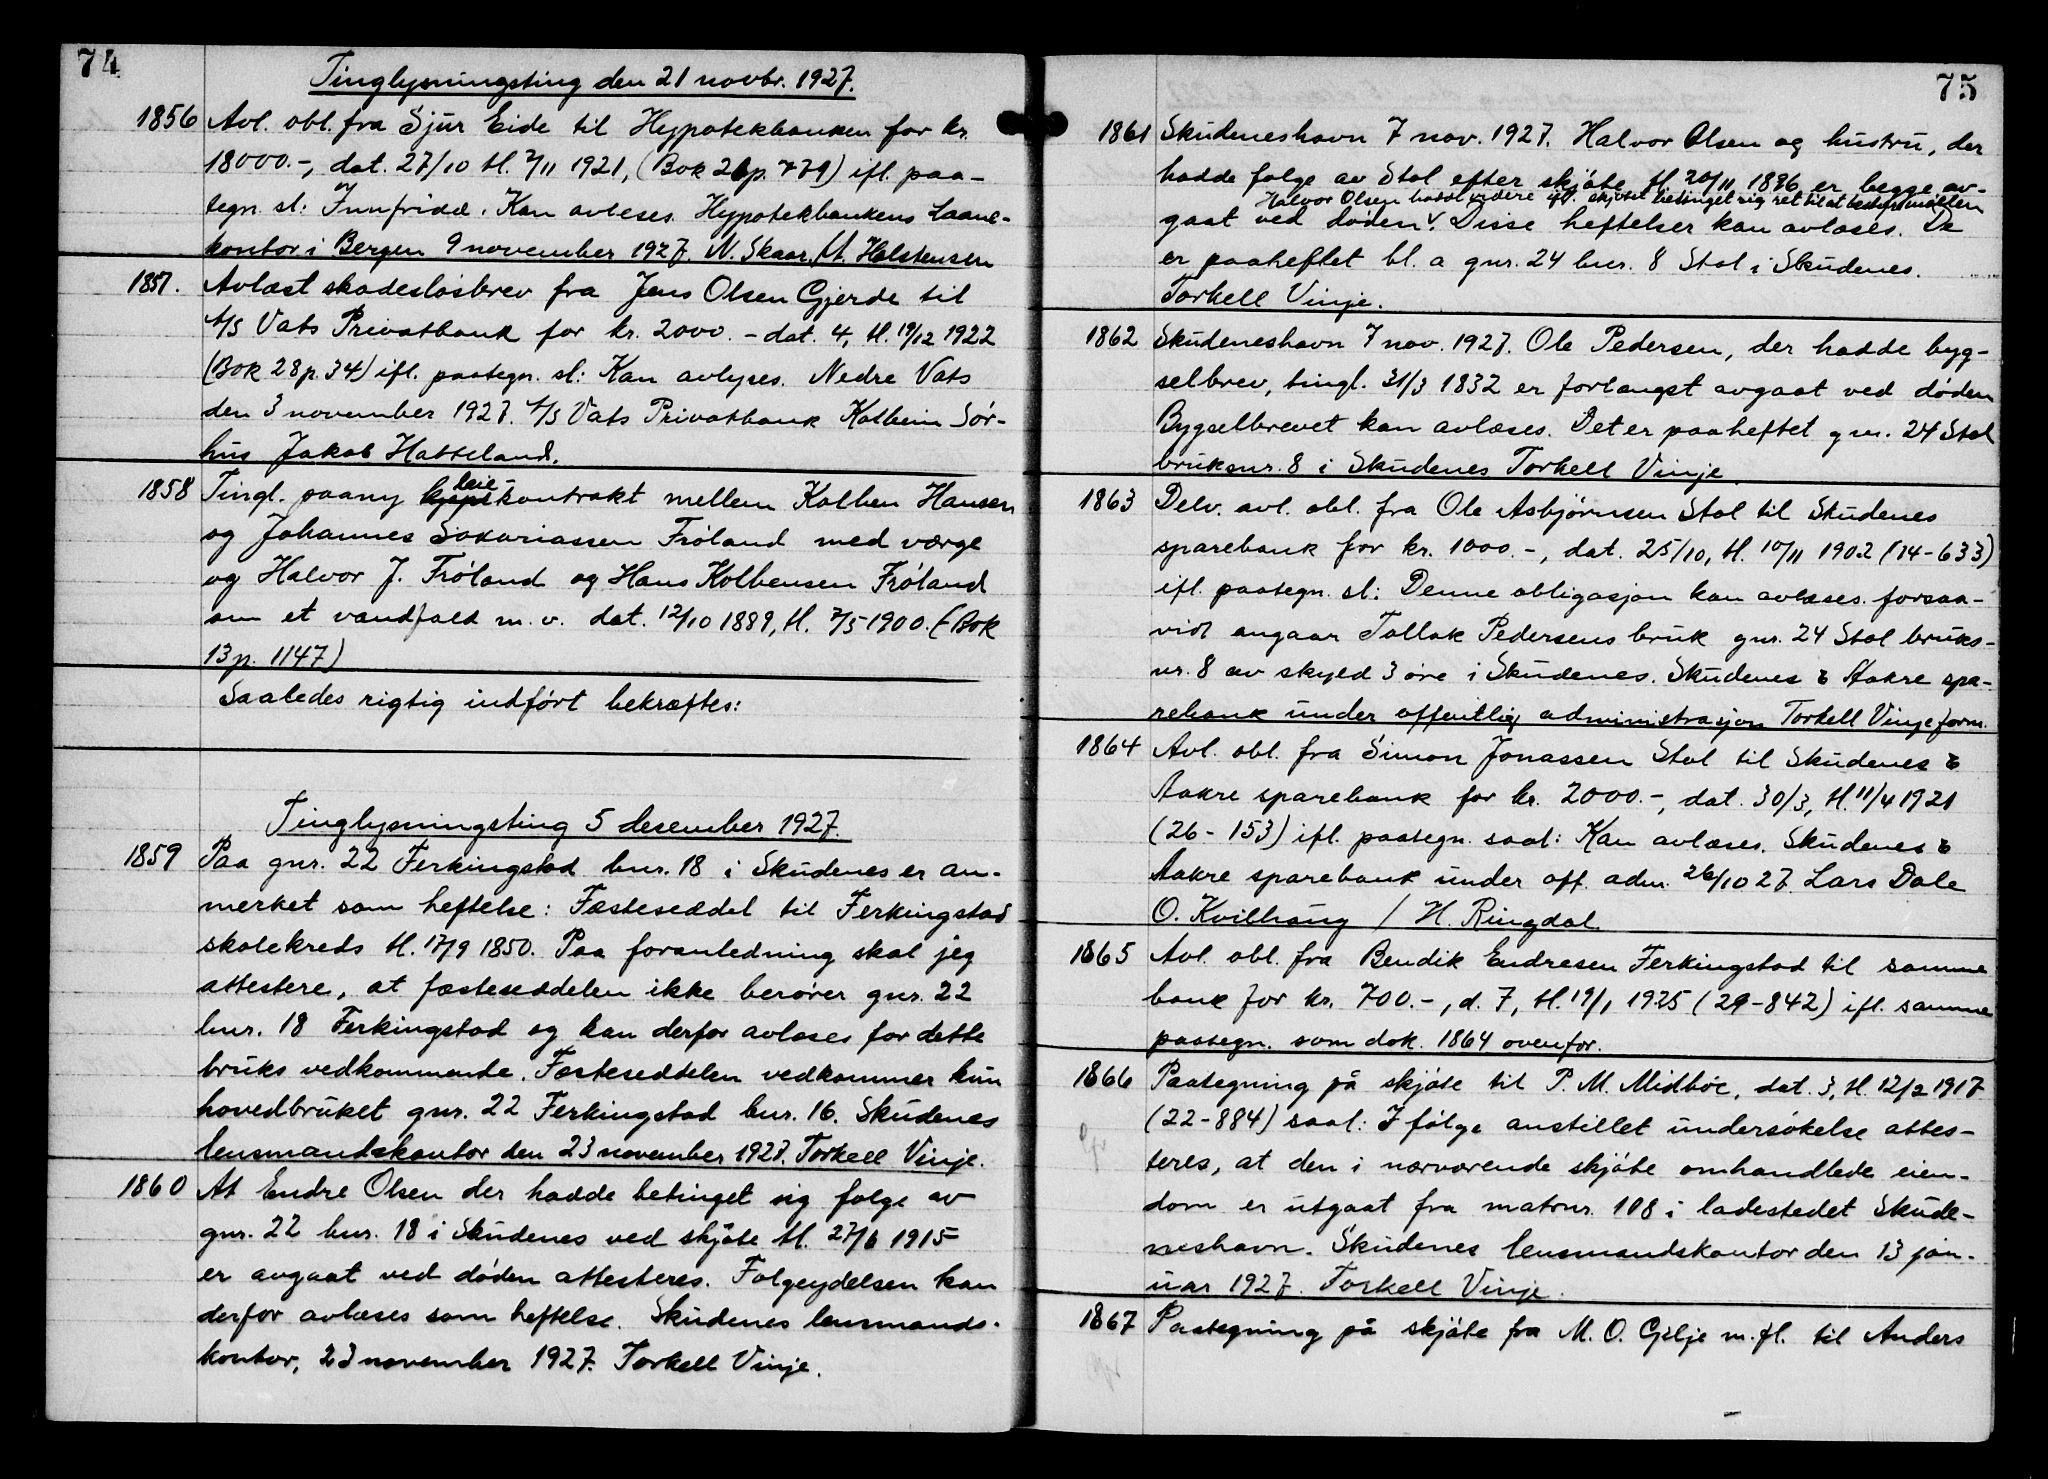 74
Tinglysningsting den 21 novbr. 1927.
1856 Avl. obl. fra Sjur Eide til Hypotekbanken for kr.
18000.-, dat. 27/10 tl. 7/11 1921, (Bok 26 p. 779) ifl. paa-
tegn. sl: Innfridd. Kan avleses. Hypotekbankens Laane-
kontor i Bergen 9 november 1927. N. Skaar / A. Halstensen
1857. Avlæst skadeslösbrev fra Jens Olsen Gjerde til
A/S Vats Privatbank for kr. 2000.- dat. 4, tl. 19/12 1922
(Bok 28 p. 34) ifl. paategn. sl: Kan avlyses. Nedre Vats
den 3 november 1927. A/S Vats Privatbank Kolbein Sör-
hus Jakob Hatteland.
1858 Tingl. paany leie-kontrakt mellem Kolben Hansen
og Johannes Sakariassen Fröland med værge
og Halvor J. Fröland og Hans Kolbensen Fröland
om et vandfald m. v. dat. 12/10 1889, tl. 7/5 1900. (Bok
13 p. 1147)
Saaledes rigtig indfört bekræftes:
Tinglysningsting 5 desember 1927.
1859 Paa gnr. 22 Ferkingstad bnr. 18 i Skudenes er an-
merket som heftelse: Fæsteseddel til Ferkingstad
skolekreds tl. 17/9 1850. Paa foranledning skal jeg
attestere, at fæsteseddelen ikke berörer gnr. 22
bnr. 18 Ferkingstad og kan derfor avlæses for dette
bruks vedkommende. Fæsteseddelen vedkommer kun
hovedbruket gnr. 22 Ferkingstad bnr. 16. Skudenes
lensmandskontor den 23 november 1927. Torkell Vinje.
1860 At Endre Olsen der hadde betinget sig folge av
gnr. 22 bnr. 18 i Skudenes ved skjöte tl. 27/6 1915
er avgaat ved döden attesteres. Folgeydelsen kan
derfor avlæses som heftelse. Skudenes lensmands-
kontor, 23 november 1927. Torkell Vinje.
75
1861 Skudeneshavn 7 nov. 1927. Halvor Olsen og hustru, der
hadde folge av Stol efter skjöte tl 20/11 1886 er begge av-
Halvor Olsen hadde videre ifl. skjötet betinget sig ret til at
gaat ved döden. Disse heftelser kan avlæses. De
er paaheftet bl. a gnr. 24 bnr. 8 Stol i Skudenes.
Torkell Vinje.
1862 Skudeneshavn 7 nov. 1927. Ole Pedersen, der hadde byg-
selbrev, tingl. 31/3 1832 er forlangst avgaat ved döden
Bygselbrevet kan avlæses. Det er paaheftet gnr. 24 Stol
bruksnr. 8 i Skudenes Torkell Vinje.
1863 Delv. avl. obl. fra Ole Asbjörnsen Stol til Skudenes
sparebank for kr. 1000.-, dat. 25/10, tl. 10/11 1902 (14-633)
ifl. paategn. sl: Denne obligasjon kan avlæses forsaa-
vidt angaar Tollak Pedersens bruk gnr. 24 Stol bruks-
nr. 8 av skyld 3 öre i Skudenes. Skudenes & Aakre spa-
rebank under offentlig administrasjon Torkell Vinje form.
1864 Avl. obl. fra Simon Jonassen Stol til Skudenes &
Aakre sparebank for kr. 2000.-, dat. 30/3, tl. 11/4 1921
(26-153) ifl. paategn. saal: Kan avlæses. Skudenes &
Aakre sparebank under off. adm. 26/10 27 Lars Dale
O. Kvilhaug / H. Ringdal.
1865 Avl. obl. fra Bendik Endresen Ferkingstad til samme
bank for kr. 700.-, d. 7, tl. 19/1 1925 (29-842) ifl. samme
paategn. som dok. 1864 ovenfor.
1866 Paategning på skjöte til P. M. Midböe, dat. 3, tl. 12/2 1917
(22-884) saal: I fölge anstillet undersökelse attes-
teres, at den i nærværende skjöte omhandlede eien-
dom er utgaat fra matrnr. 108 i ladestedet Skude-
neshavn. Skudenes lensmandskontor den 13 jan-
uar 1927. Torkell Vinje.
1867 Paategning på skjöte fra M. O. Gilje m. fl. til Anders